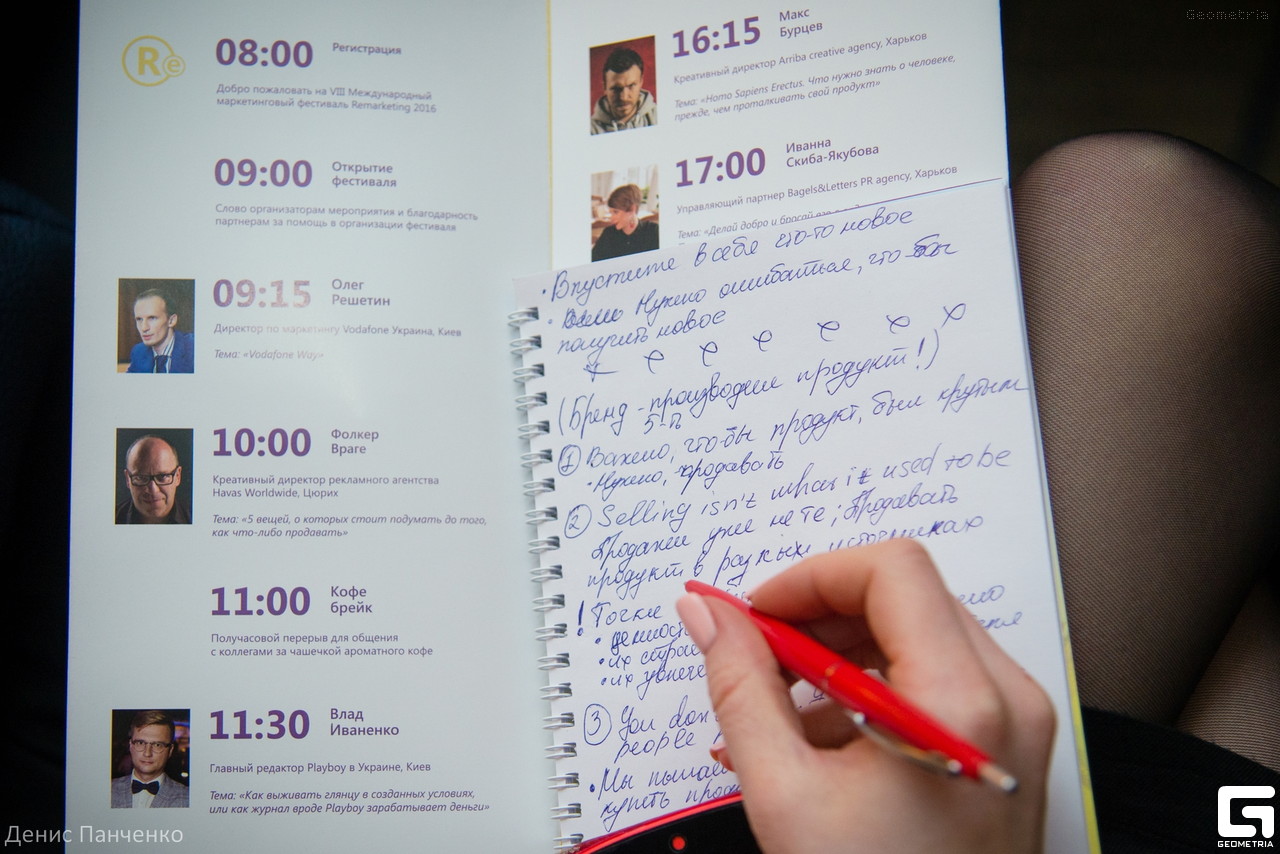 Geometria
Re
08:00 Регистрация
Добро пожаловать на VIII Международный
маркетинговый фестиваль Remarketing 2016
09:00 Открытие
фестиваля
Слово организаторам мероприятия и благодарность
партнерам за помощь в организации фестиваля
09:15 Олег
Решетин
Директор по маркетингу Vodafone Украина, Киев
Тема: «Vodafone Way»
10:00 Фолкер
Враге
Креативный директор рекламного агентства
Havas Worldwide, Цюрих
Тема: «5 вещей, о которых стоит подумать до того,
как что-либо продавать»
11:00 Кофе
брейк
Получасовой перерыв для общения
с коллегами за чашечкой ароматного кофе
11:30 Влад
Иваненко
Главный редактор Playboy в Украине, Киев
Тема: «Как выживать глянцу в созданных условиях,
или как журнал вроде Playboy зарабатывает деньги»
16:15 Макс
Бурцев
Креативный директор Arriba creative agency, Харьков
Тема: «Homo Sapiens Erectus. Что нужно знать о человеке,
прежде, чем проталкивать свой продукт»
17:00 Иванна
Скиба-Якубова
Управляющий партнер Bagels&Letters PR agency, Харьков
Тема: «Делай добро и бросай его
• Впустите в себя что-то новое
• Нужно ошибаться, что бы
получить новое
(Бренд - производные продукт!)
5-П
① Важно, что-бы продукт, был крутым
• Нужно, продавать
② Selling isn't what it used to be
Продажи уже не те; Продавать
продукт в разных источниках
! Точки
• ценност
• их стра
• их увлече
③ You don
people
• Мы пытаем
купить прод
Денис Панченко
GEOMETRIA